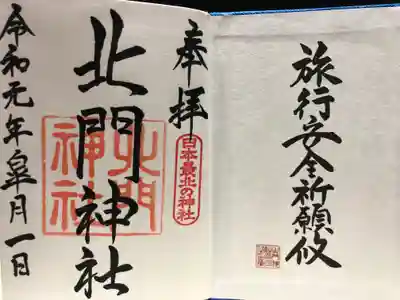 旅行安全祈願攸
奉拝
日本最北の神社
北門神社
北門
神社
令和元年皐月一日